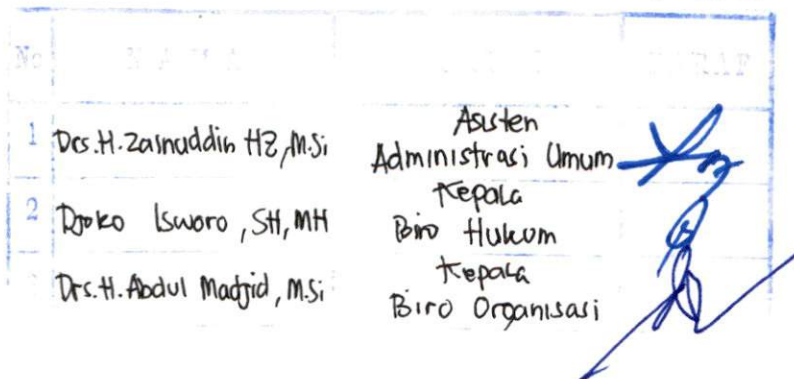 No NAMA PARAF
1 Drs. H. Zainuddin HZ, M.Si Asisten Administrasi Umum
2 Djoko Isworo, SH, MH Kepala Biro Hukum
Drs. H. Abdul Madjid, M.Si Kepala Biro Organisasi